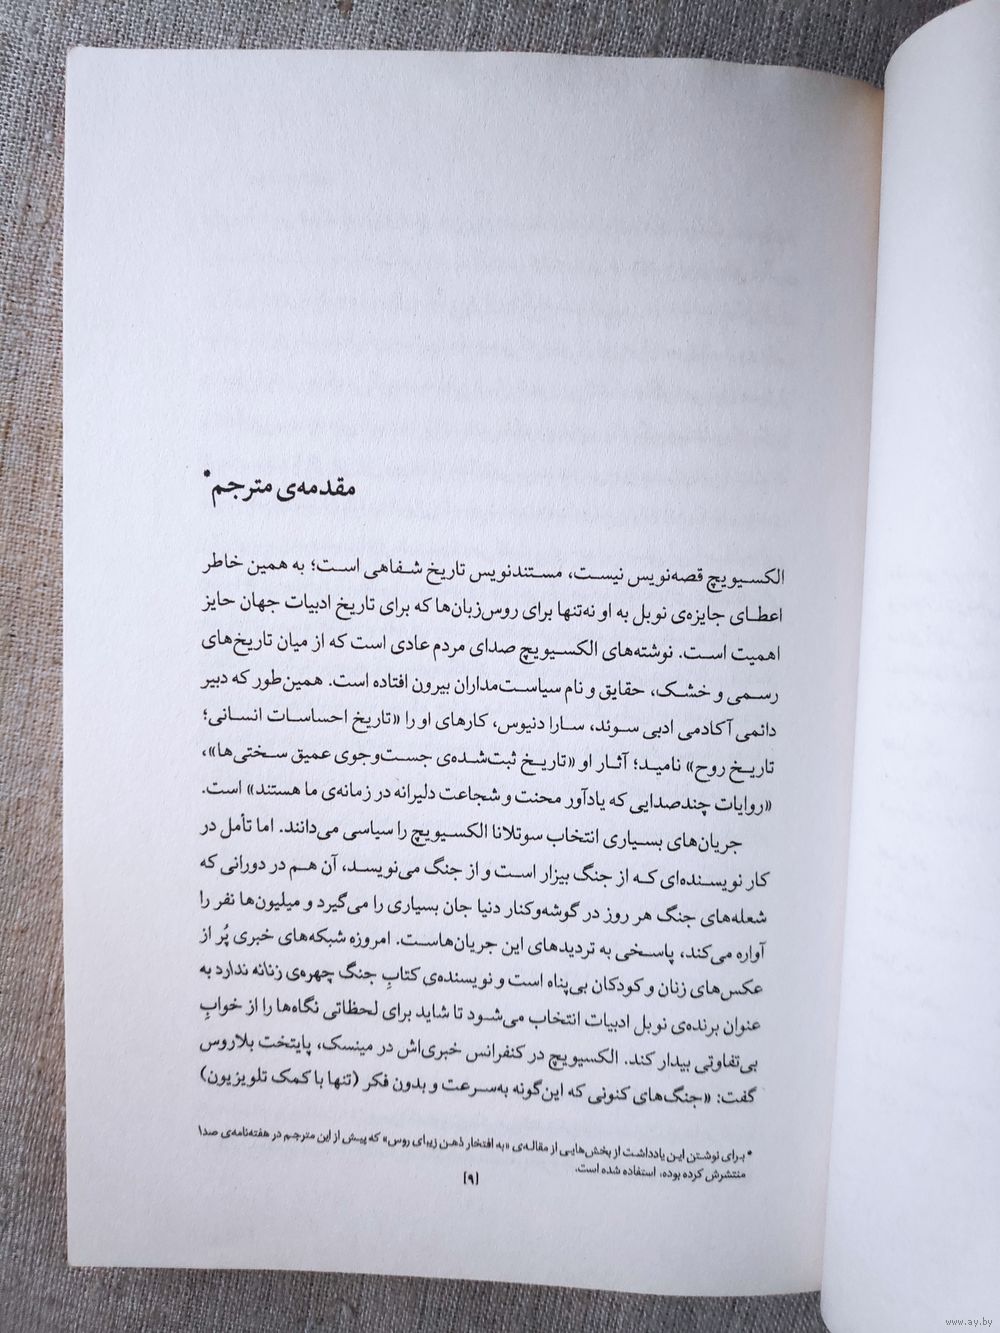 مقدمه‌ی مترجم*
الکسیویچ قصه‌نویس نیست، مستندنویس تاریخ شفاهی است؛ به همین خاطر
اعطای جایزه‌ی نوبل به او نه‌تنها برای روس‌زبان‌ها که برای تاریخ ادبیات جهان حایز
اهمیت است. نوشته‌های الکسیویچ صدای مردم عادی است که از میان تاریخ‌های
رسمی و خشک، حقایق و نام سیاست‌مداران بیرون افتاده است. همین‌طور که دبیر
دائمی آکادمی ادبی سوند، سارا دنیوس، کارهای او را «تاریخ احساسات انسانی؛
تاریخ روح» نامید؛ آثار او «تاریخ ثبت‌شده‌ی جست‌وجوی عمیق سختی‌ها»،
«روایات چندصدایی که یادآور محنت و شجاعت دلیرانه در زمانه‌ی ما هستند» است.
جریان‌های بسیاری انتخاب سوتلانا الکسیویچ را سیاسی می‌دانند. اما تأمل در
کار نویسنده‌ای که از جنگ بیزار است و از جنگ می‌نویسد، آن هم در دورانی که
شعله‌های جنگ هر روز در گوشه‌وکنار دنیا جان بسیاری را می‌گیرد و میلیون‌ها نفر را
آواره می‌کند، پاسخی به تردیدهای این جریان‌هاست. امروزه شبکه‌های خبری پُر از
عکس‌های زنان و کودکان بی‌پناه است و نویسنده‌ی کتابِ جنگ چهره‌ی زنانه ندارد به
عنوان برنده‌ی نوبل ادبیات انتخاب می‌شود تا شاید برای لحظاتی نگاه‌ها را از خوابِ
بی‌تفاوتی بیدار کند. الکسیویچ در کنفرانس خبری‌اش در مینسک، پایتخت بلاروس
گفت: «جنگ‌های کنونی که این‌گونه به‌سرعت و بدون فکر (تنها با کمک تلویزیون)
* برای نوشتن این یادداشت از بخش‌هایی از مقاله‌ی «به افتخار ذهن زیبای روس» که پیش از این مترجم در هفته‌نامه‌ی صدا
منتشرش کرده بوده، استفاده شده است.
[۹]
www.ay.by